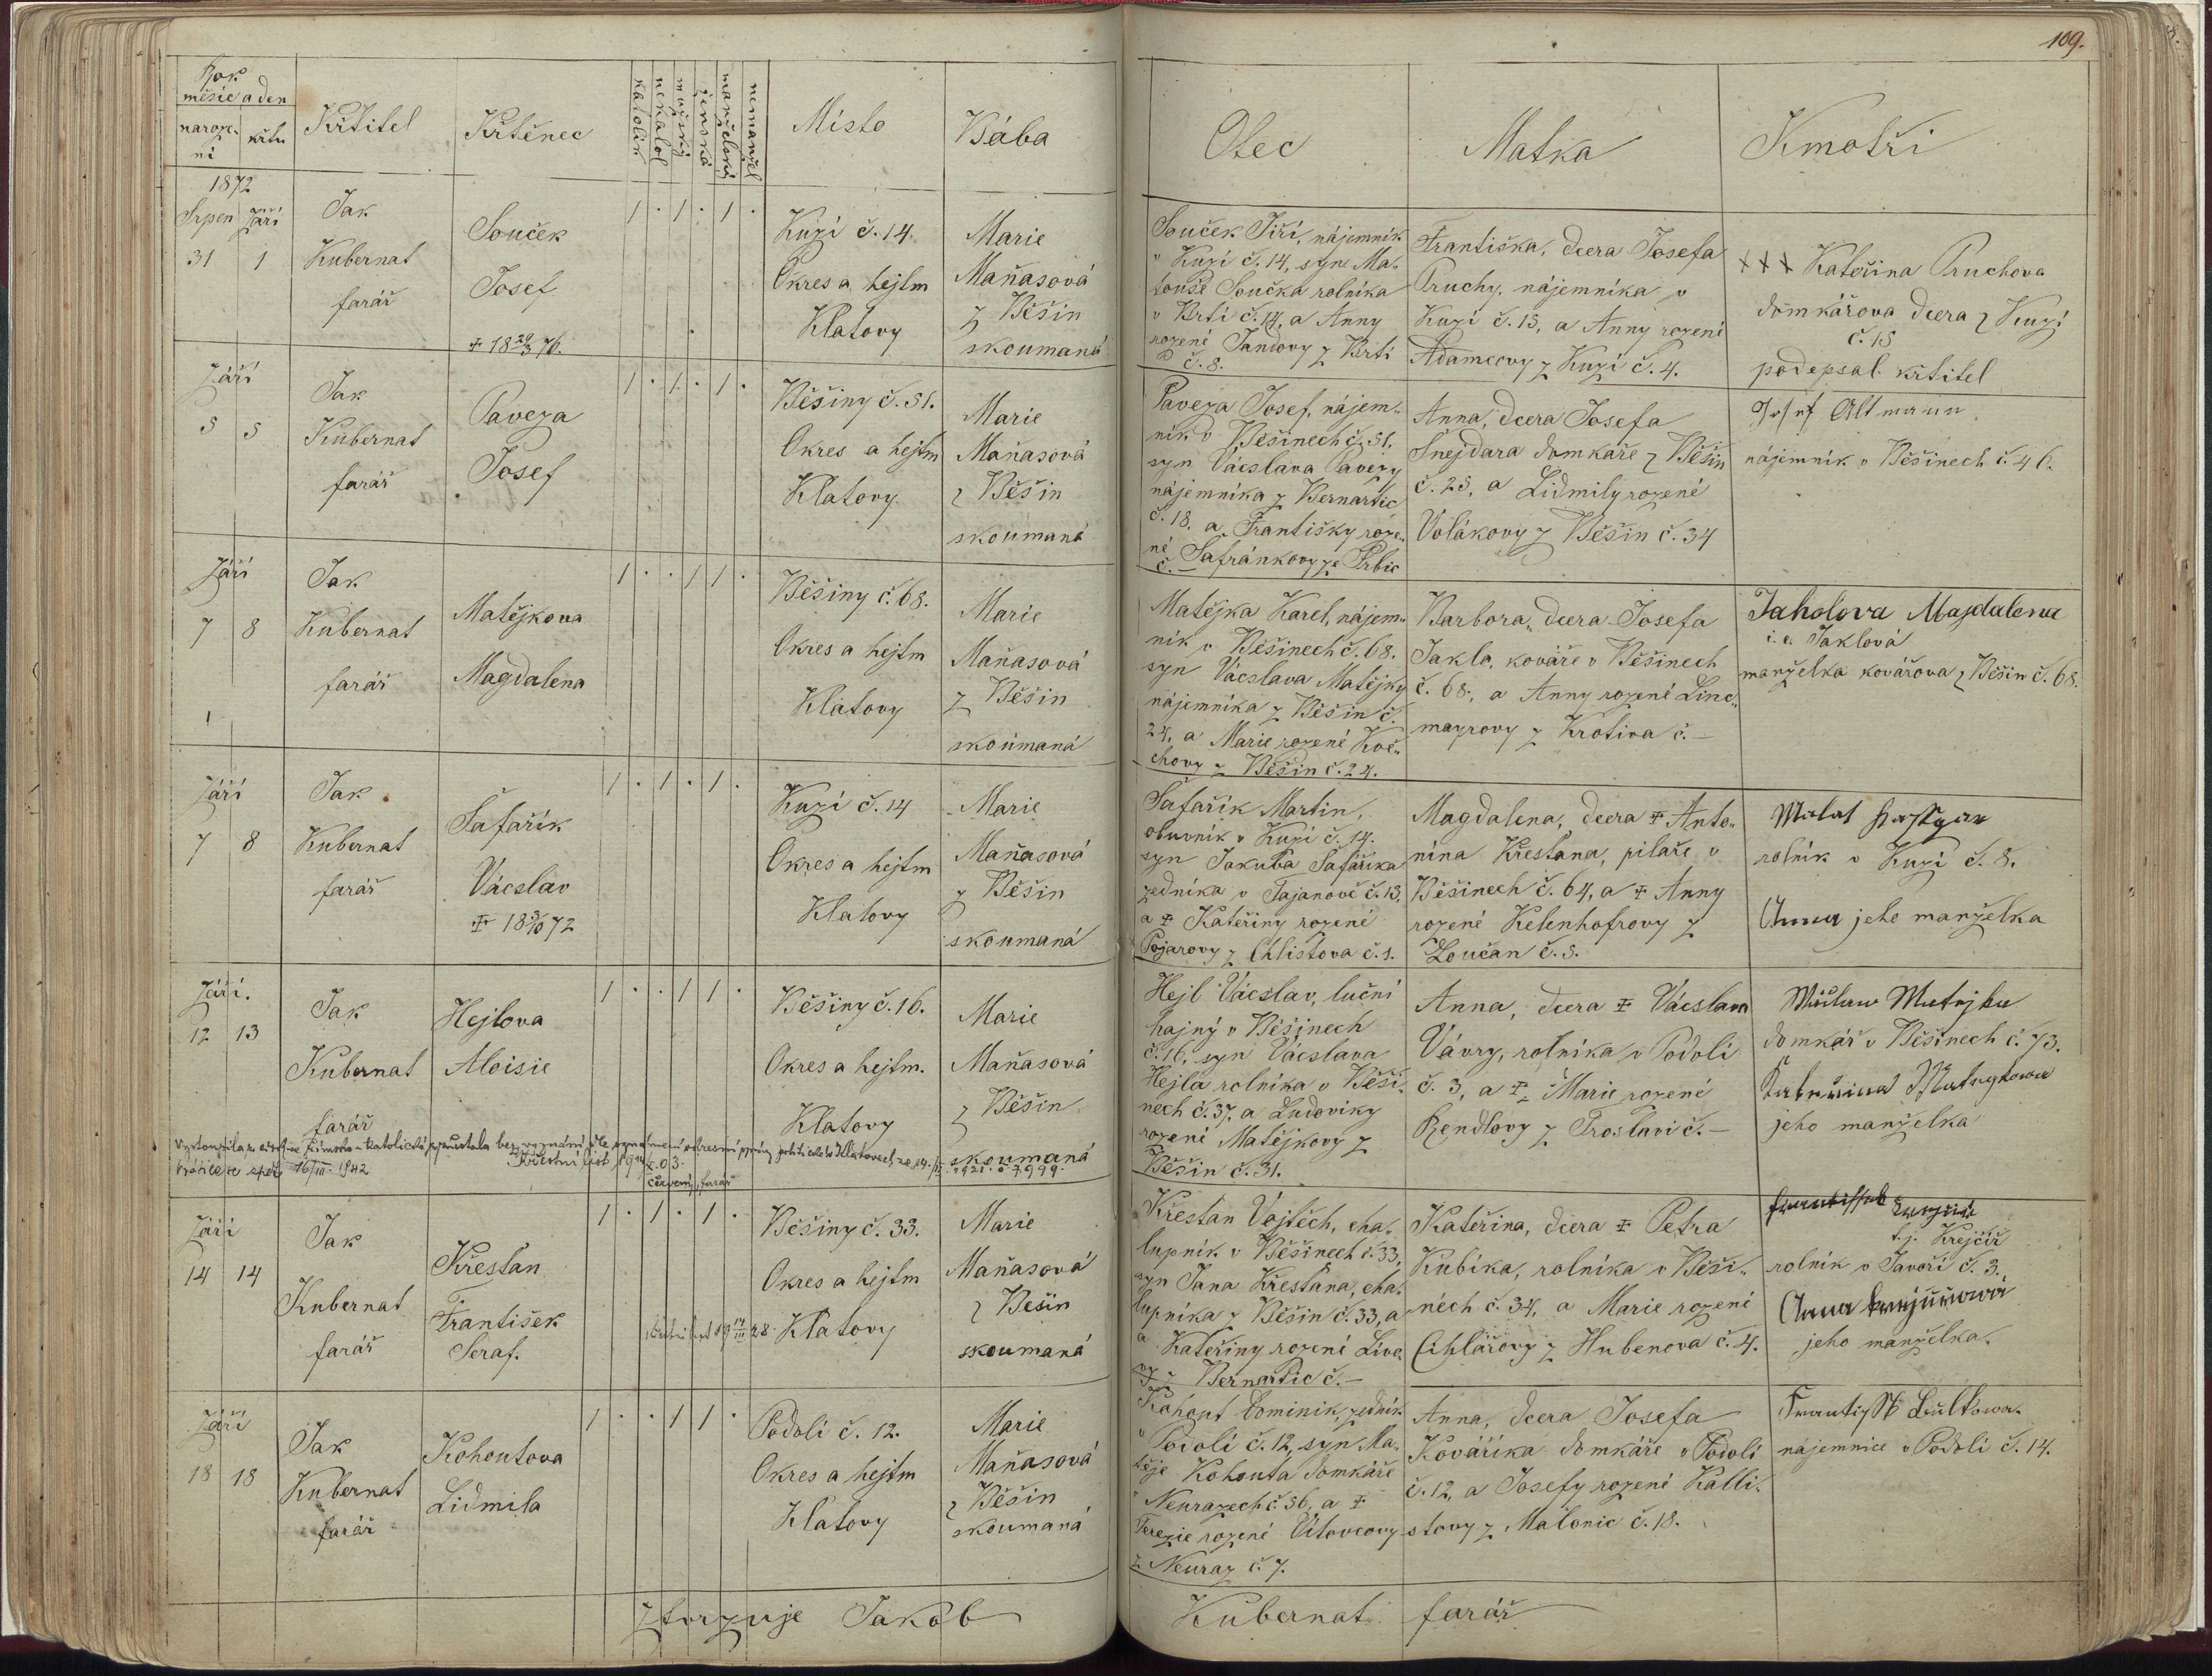 109.
Rok
měsíc a den
naroze-
ní
křtu
Křtitel
Křtěnec
katolík
nekatol
mužský
ženská
manželský
nemanžel
Místo
Bába
Otec
Matka
Kmotři
1872
Srpen Září
31 1
Jak
Kubernat
farář
Souček
Josef
1 . 1 . 1 .
Kuzí č. 14.
Okres a hejtm
Klatovy
Marie
Maňasová
z Běšin
skoumaná
Souček Jiří, nájemník
v Kuzí č. 14, syn Ma-
touše Součka rolníka
v Brtí č. 14, a Anny
rozené Jandovy z Brtí
č. 8.
Františka, dcera Josefa
Pruchy, nájemníka v
Kuzí č. 15, a Anny rozené
Adamcovy z Kuzí č. 4.
+++ Kateřina Pruchova
domkářova dcera z Kuzí
č. 15
podepsal křtitel
Září
5 5
Jak
Kubernat
farář
Paveza
Josef
1 . 1 . 1 .
Běšiny č. 51.
Okres a hejtm
Klatovy
Marie
Maňasová
z Běšin
skoumaná
Paveza Josef, nájem-
ník v Běšinech č. 51,
syn Václslava Pavezy
nájemníka z Bernartic
č. 18. a Františky roze-
né Šafránkovy ze Prbic
č. —
Anna, dcera Josefa
Šnejdara domkáře z Běšin
č. 25, a Lidmily rozené
Volákovy z Běšin č. 34
Josef Altmann
nájemník v Běšinech č. 46.
Září
7 8
Jak
Kubernat
farář
Matějkova
Magdalena
1 . . 1 1 .
Běšiny č. 68.
Okres a hejtm
Klatovy
Marie
Maňasová
z Běšin
skoumaná
Matějka Karel, nájem-
ník v Běšinech č. 68.
syn Václslava Matějky
nájemníka z Běšin č.
24, a Marie rozené Koč-
chovy z Běšin č. 24.
Barbora, dcera Josefa
Jakla, kováře v Běšinech
č. 68, a Anny rozené Linc-
mayrovy z Krotiva č. —
Jaholova Majdalena
i. e. Jaklová
manželka kovářova z Běšin č. 68.
Září
7 8
Jak
Kubernat
farář
Šafařík
Václslav
1 . 1 . 1 .
Kuzí č. 14
Okres a hejtm
Klatovy
Marie
Maňasová
z Běšin
skoumaná
Šafařík Martin,
obuvník v Kuzí č. 14.
syn Jakuba Šafaříka
zedníka v Tajanově č. 13,
a ‡ Kateřiny rozené
Pojarovy z Chlistova č. 1.
Magdalena, dcera ‡ Anto-
nína Křesťana, pilaře v
Běšinech č. 64, a ‡ Anny
rozené Kelenhofrovy z
Loučan č. 5.
rolník v Kuzí č. 8.
Anna jeho manželka
Září.
12 13
Jak
Kubernat
farář
Hejlova
Aloisie
1 . . 1 1 .
Běšiny č. 16.
Okres a hejtm.
Klatovy
Marie
Maňasová
z Běšin
skoumaná
Hejl Václslav, luční
hajný v Běšinech
č. 16, syn Václslava
Hejla rolníka v Běši-
nech č. 37, a Ludoviky
rozené Matějkovy z
Běšin č. 31.
Anna, dcera ‡ Václslava
Vávry, rolníka v Podolí
č. 3, a ‡ Marie rozené
Rendlovy z Froslaví č. —
Matějka
domkář v Běšinech č. 73.
jeho manželka
Vystoupila z církve římsko-katolické, zůstala bez vyznání dle oznámení okresní správy politické v Klatovech
Vrátila se zpět 16/III. 1942
Křestní list
Září
14 14
Jak
Kubernat
farář
Křesťan
František
Seraf.
1 . 1 . 1 .
Běšiny č. 33.
Okres a hejtm
Klatovy
Marie
Maňasová
z Běšin
skoumaná
Křesťan Vojtěch, cha-
lupník v Běšinech č. 33,
syn Jana Křesťana, cha-
lupníka z Běšin č. 33, a
Kateřiny rozené Líve-
vy z Bernartic č. —
Kateřina, dcera ‡ Petra
Kubíka, rolníka v Běši-
nech č. 34, a Marie rozené
Cihlářovy z Hubenova č. 4.
t. j. Krejčíř
rolník v Javoří č. 3.
Anna
jeho manželka.
Září
18 18
Jak
Kubernat
farář
Kohoutova
Lidmila
1 . . 1 1 .
Podolí č. 12.
Okres a hejtm
Klatovy
Marie
Maňasová
z Běšin
skoumaná
Kohout Dominik, zedník
v Podolí č. 12, syn Ma-
těje Kohouta domkáře
v Neurazech č. 56, a ‡
Terezie rozené Vítovcovy
z Neuraz č. 7.
Anna, dcera Josefa
Kováříka domkáře v Podolí
č. 12, a Josefy rozené Kalli-
stovy z Malonic č. 18.
nájemnice v Podolí č. 14.
ztvrzuje Jakob Kubernat farář